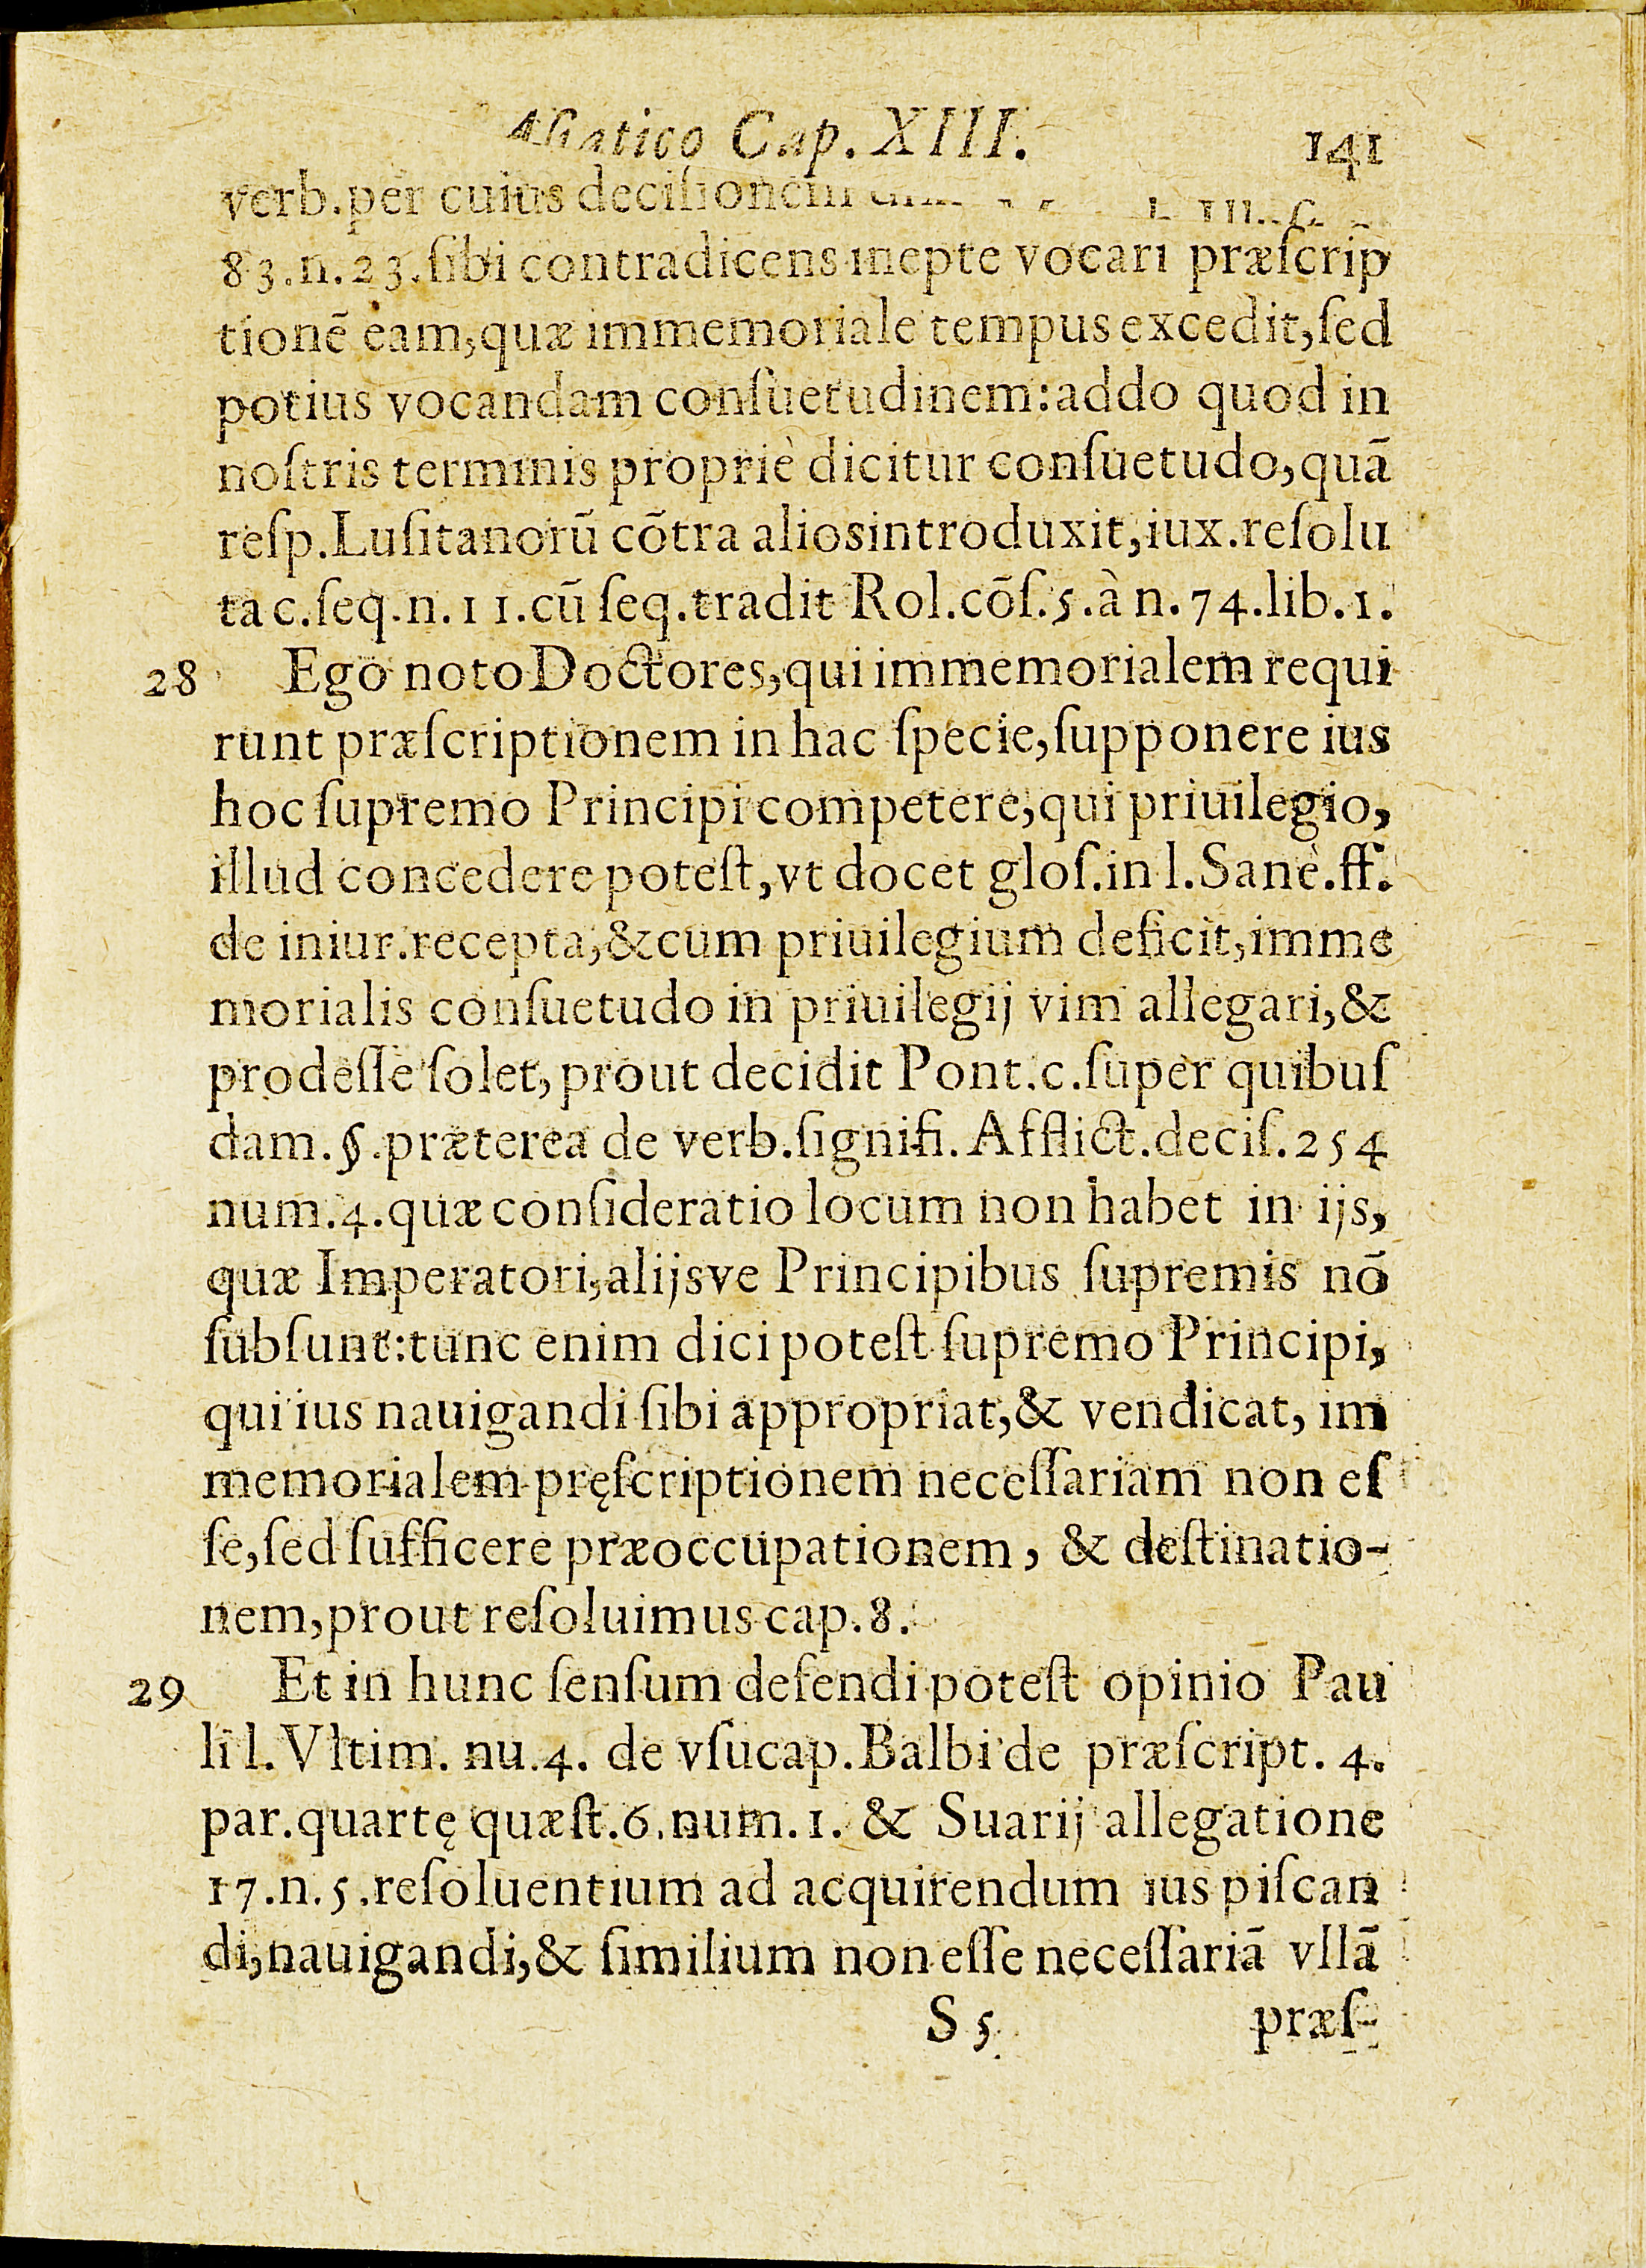 Aſiatico Cap. XIII. 141
verb.per cuius deciſionem
83.n.23.ſibi contradicens inepte vocari præſcrip
tionē eam,quæ immemoriale tempus excedit,ſed
potius vocandam conſuetudinem:addo quod in
noſtris terminis propriè dicitur conſuetudo,quā
reſp.Luſitanorū cōtra aliosintroduxit,iux.reſolu
ta c.ſeq.n.11.cū ſeq.tradit Rol.cōſ.5.à n.74.lib.1.
28 Ego noto Doctores,qui immemorialem requi
runt præſcriptionem in hac ſpecie,ſupponere ius
hoc ſupremo Principi competere,qui priuilegio,
illud concedere poteſt,vt docet gloſ.in l.Sanè.ff.
de iniur.recepta,&cum priuilegium deficit,imme
morialis conſuetudo in priuilegij vim allegari,&
prodeſſe ſolet,prout decidit Pont.c.ſuper quibuſ
dam.§.præterea de verb.ſignifi.Afflict.deciſ.254
num.4.quæ conſideratio locum non habet in ijs,
quæ Imperatori,alijsve Principibus ſupremis nō
ſubſunt:tunc enim dici poteſt ſupremo Principi,
qui ius nauigandi ſibi appropriat,& vendicat, im
memorialem pręſcriptionem neceſſariam non eſ
ſe,ſed ſufficere præoccupationem, & deſtinatio-
nem,prout reſoluimus cap.8.
29 Et in hunc ſenſum defendi poteſt opinio Pau
li l.Vltim. nu.4. de vſucap.Balbi de præſcript. 4.
par.quartę quæſt.6.num.1. & Suarij allegatione
17.n.5.reſoluentium ad acquirendum ius piſcan
di,nauigandi,& ſimilium non eſſe neceſſariā vllā
S 5 præſ-